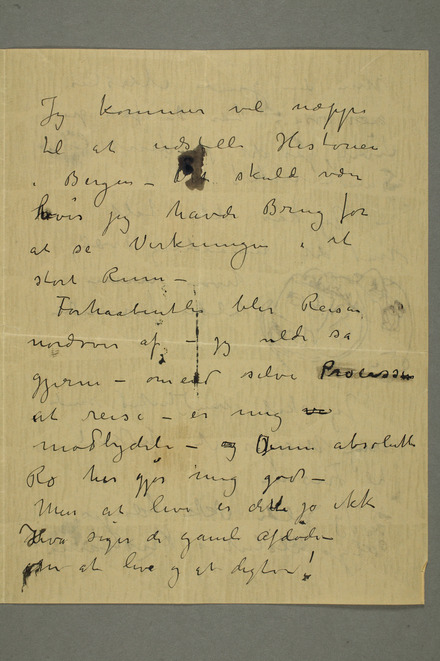 Jeg kommer vel neppe
til at udstille Historien
i Bergen – Det skulde være
hvis jeg havde Brug for
at se Virkningen i et
stort Rum –
Forhaabentlig blir Reisen
nordover af, – jeg vilde så
gjerne – omend selve Processen
at reise – er mig
modbydelig – og Denne absolutte
Ro her gjør mig godt –
Men at leve er dette jo ikke
Hva siger de gamle afdøde
om at leve og at digte!